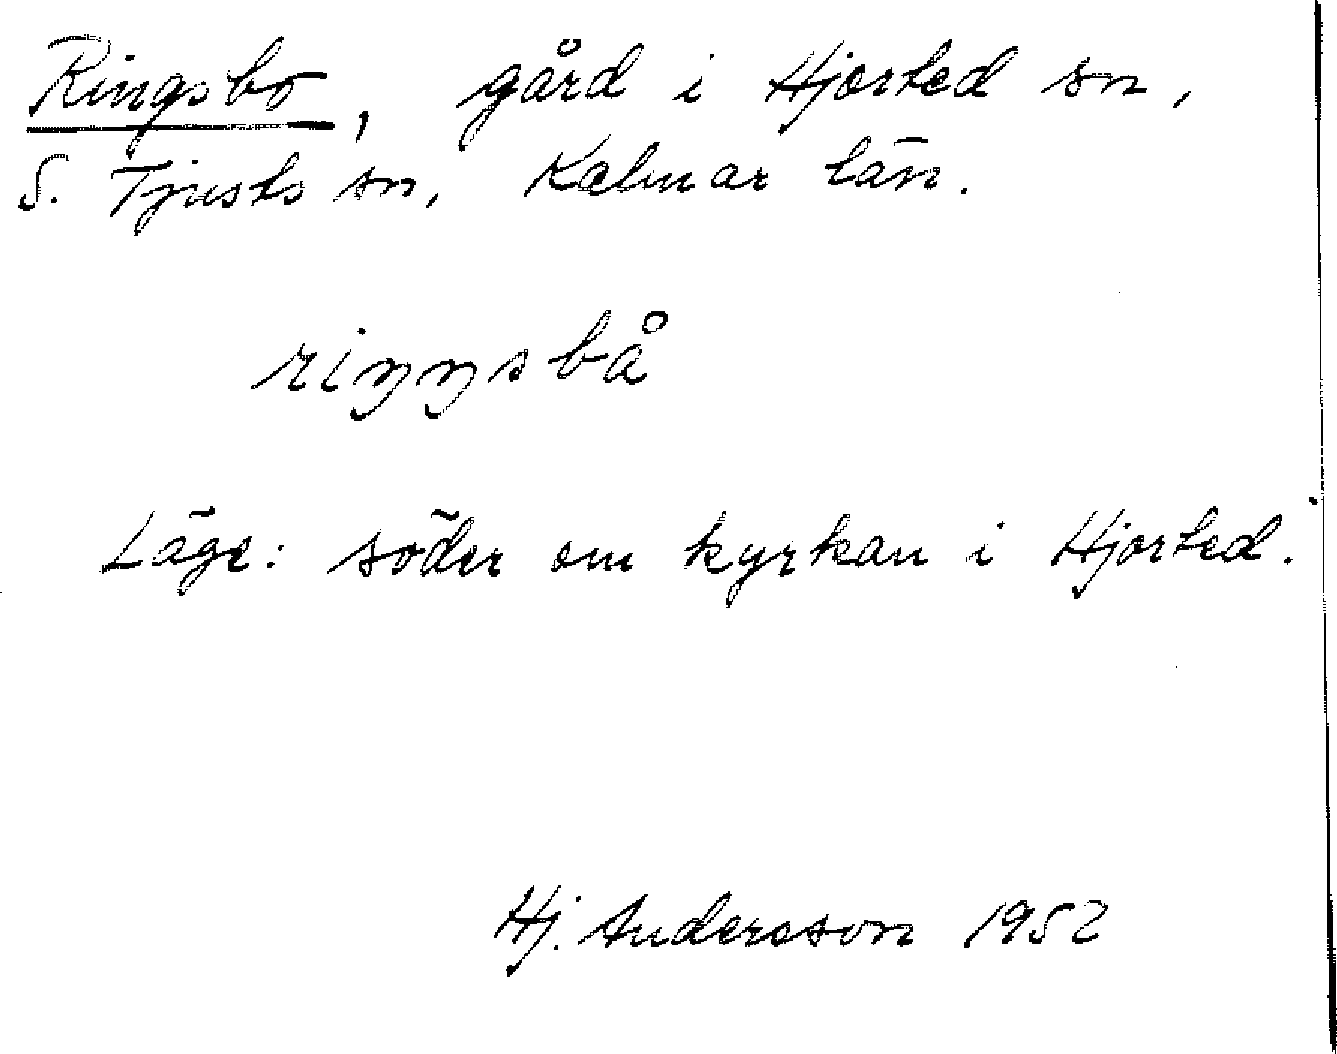 Ringsbo, gård i Hjorted sn,
S. Tjusts sn, Kalmar län.
riŋŋsbå
Läge: söder om kyrkan i Hjorted.
Hj. Andersson 1952